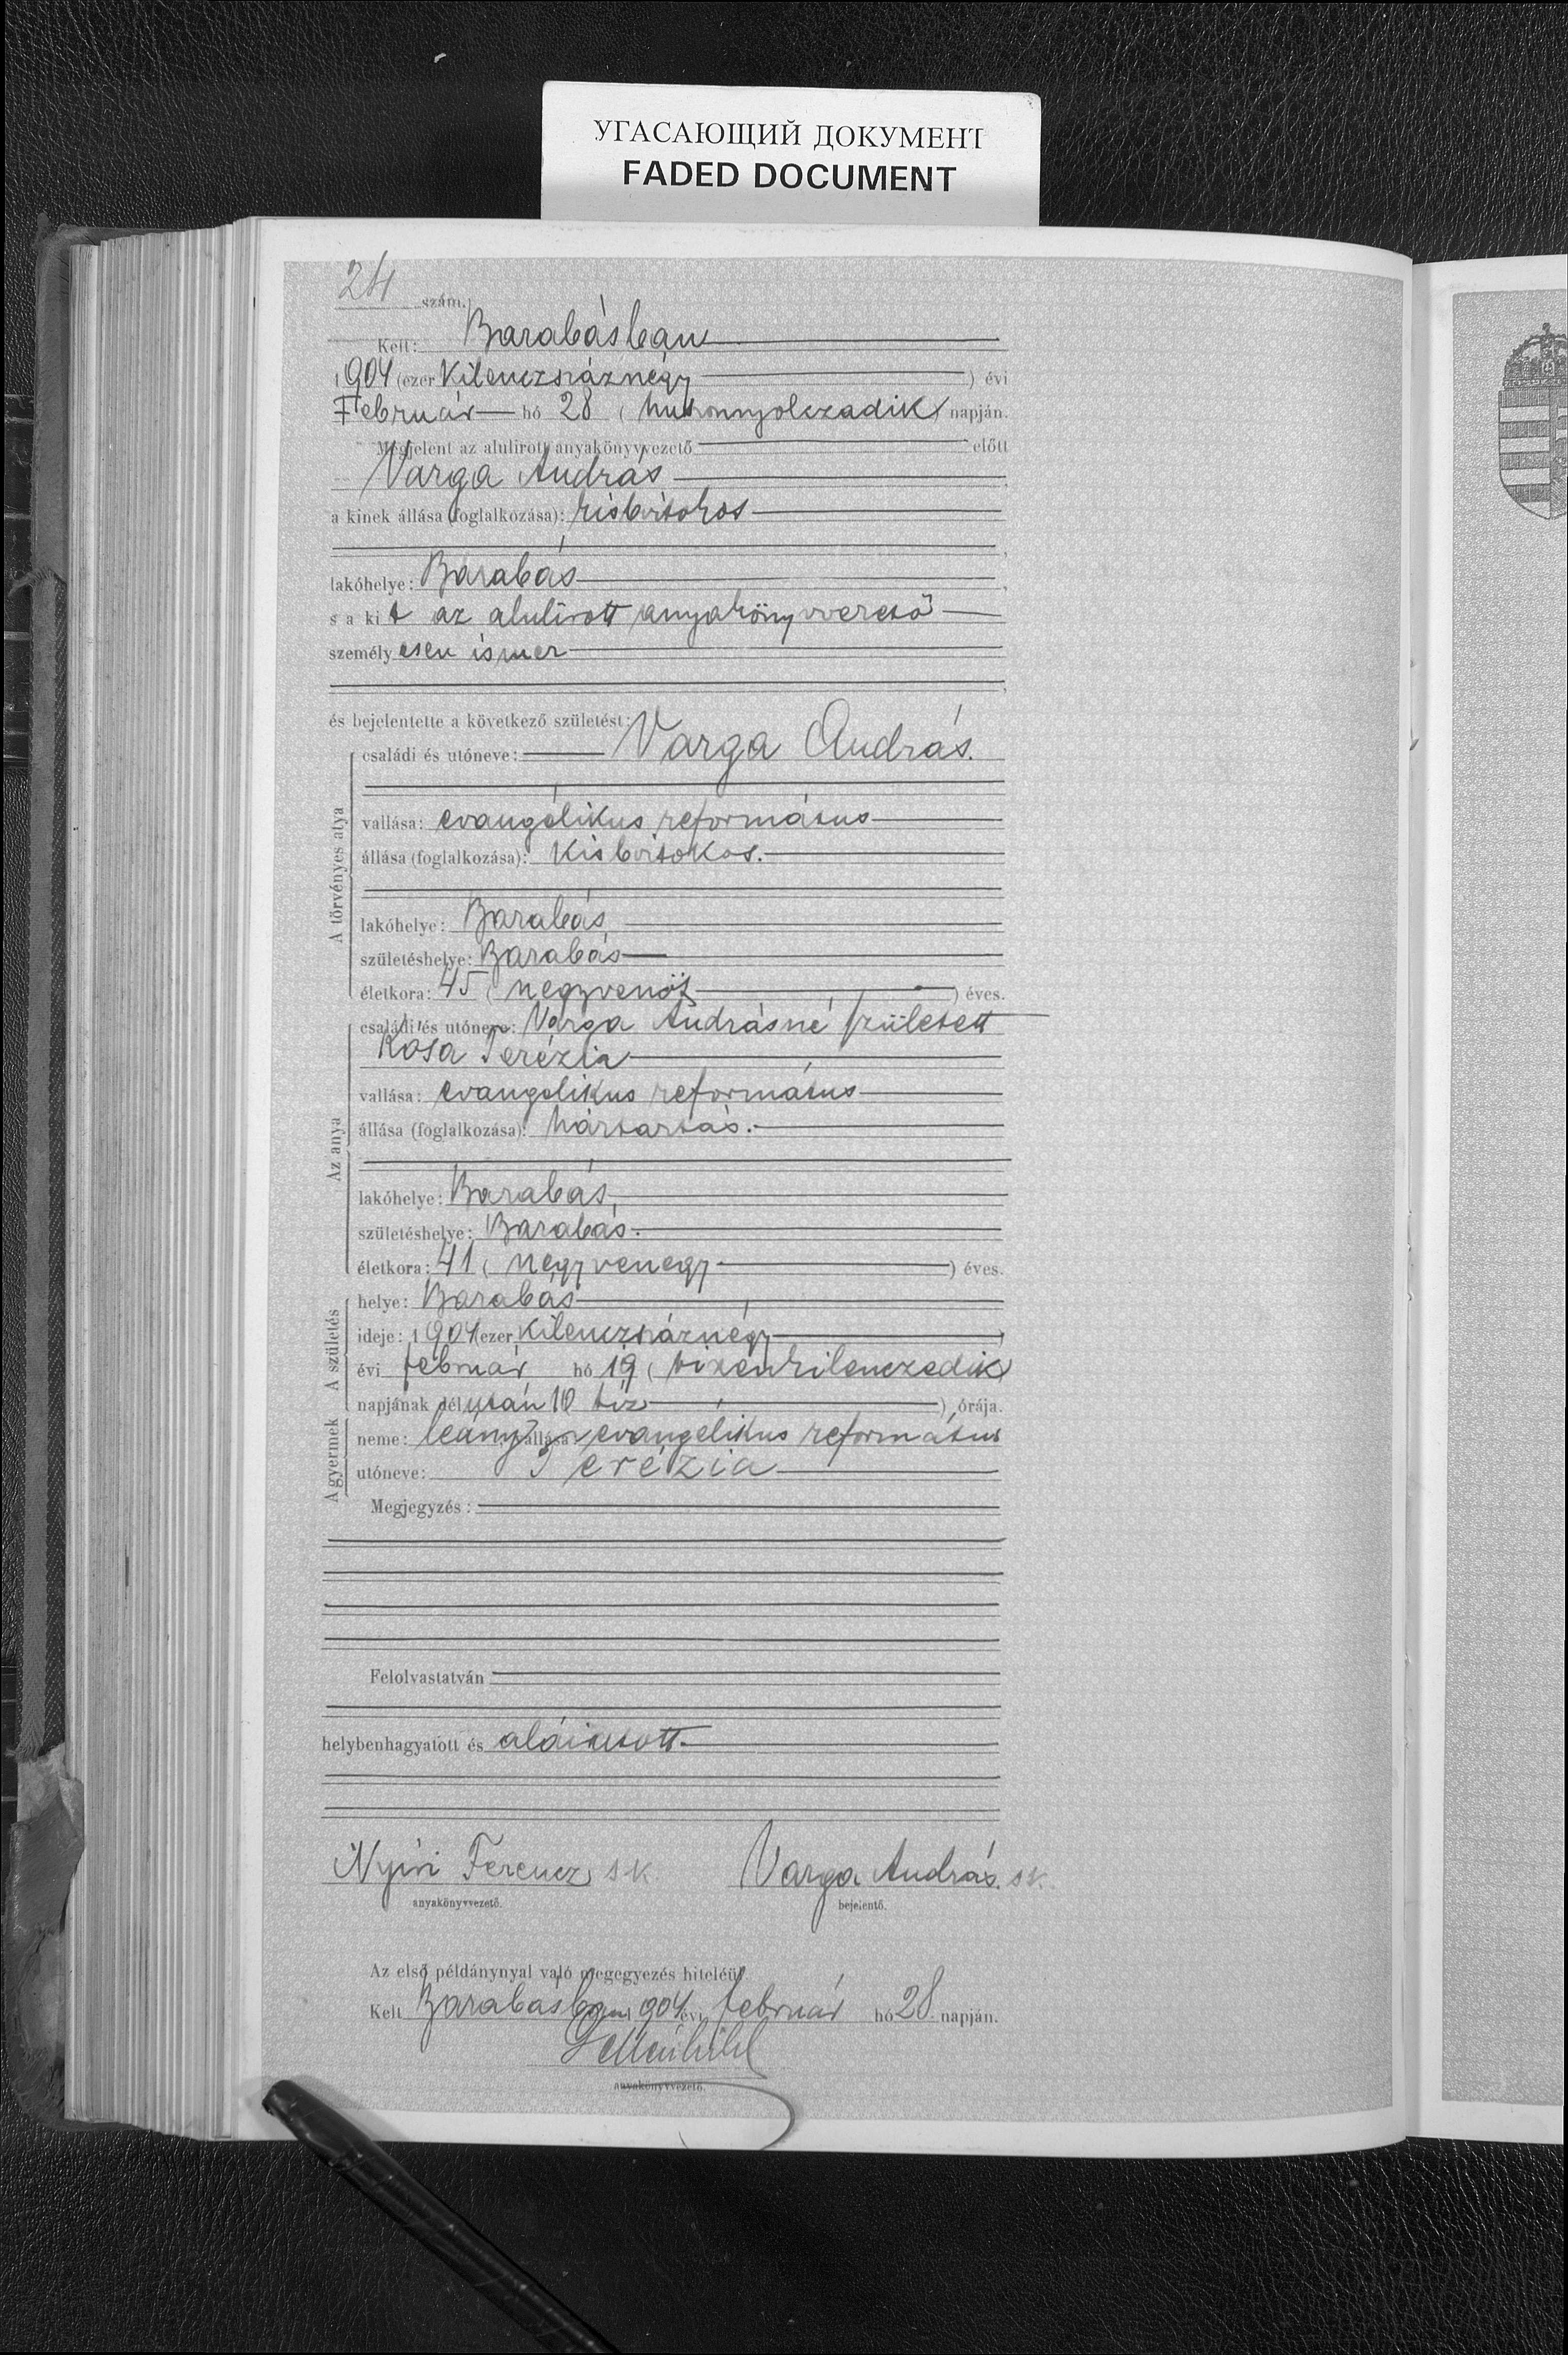 УГАСАЮЩИЙ ДОКУМЕНТ
FADED DOCUMENT
24 szám.
Kelt: Barabásban
1904 (ezer kilenczszáznégy) évi
Február hó 28 (huszonnyolczadik) napján.
Megjelent az alulirott anyakönyvvezető előtt
Varga András
a kinek állása (foglalkozása): kisbirtokos
lakóhelye: Barabás
s a kit az alulírott anyakönyvvezető
személyesen ismer
és bejelentette a következő születést:
A törvényes atya
családi és utóneve: Varga András.
vallása: evangélikus református
állása (foglalkozása): Kisbirtokos.
lakóhelye: Barabás,
születéshelye: Barabás
életkora: 45 (negyvenöt) éves.
Az anya
családi és utóneve: Varga Andrásné született
Kósa Terézia
vallása: evangelikus református
állása (foglalkozása): háztartás.
lakóhelye: Barabás,
születéshelye: Barabás.
életkora: 41 (negyvenegy) éves.
A születés
helye: Barabás
ideje: 1904 (ezer kilenczszáznégy)
évi február hó 19 (tizenkilenczedik)
napjának délután 10 tíz) órája.
A gyermek
neme: leány vallása: evangelikus református
utóneve: Terézia
Megjegyzés:
Felolvastatván
helybenhagyatott és aláiratott.
Nyiri Ferencz s k. Varga András. s k.
anyakönyvvezető. bejelentő.
Az első példánynyal való megegyezés hiteléül
Kelt Barabásban 1904 évi február hó 28. napján.
anyakönyvvezető.